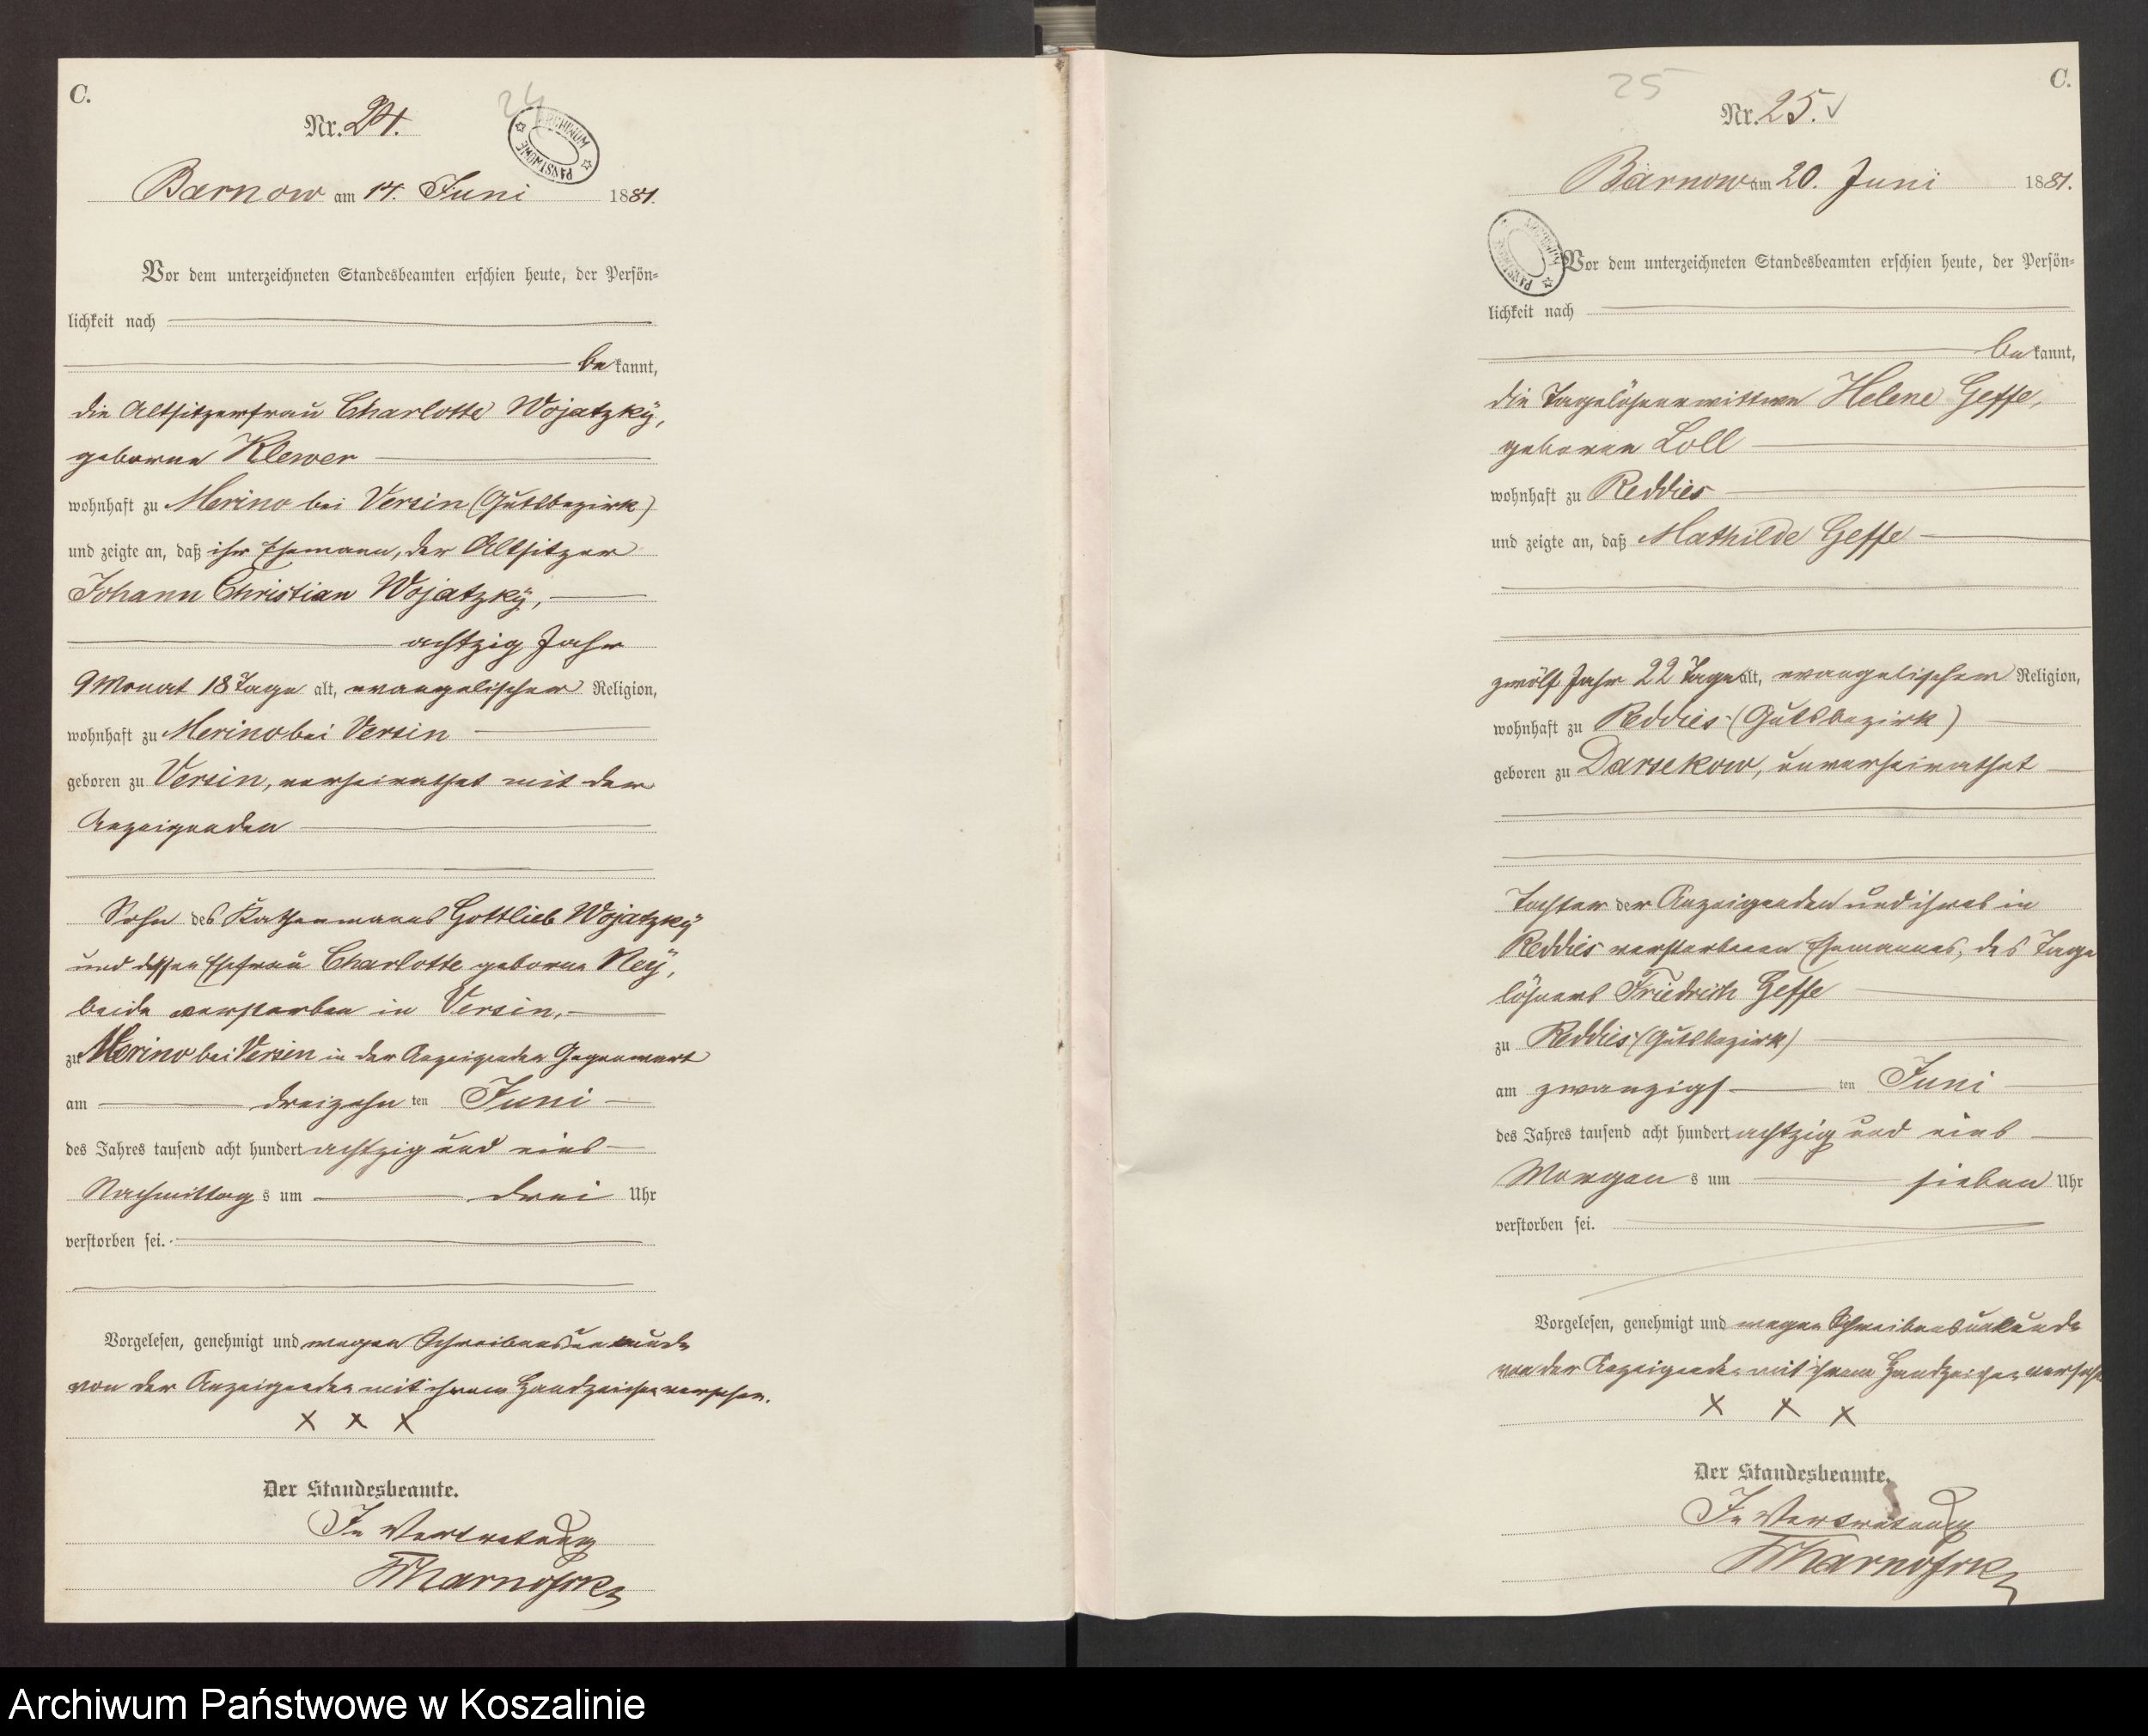 C.
24
Nr. 24.
ARCHIWUM PAŃSTWOWE
Barnow am 14. Juni 1881.
Vor dem unterzeichneten Standesbeamten erschien heute, der Persön-
lichkeit nach
bekannt,
die Altsitzerfrau Charlotte Wojatzky,
geborne Klewer
wohnhaft zu Merino bei Versin (Gutsbezirk)
und zeigte an, daß ihr Ehemann, der Altsitzer
Johann Christian Wojatzky,
achtzig Jahr
9 Monat 18 Tage alt, evangelischer Religion,
wohnhaft zu Merino bei Versin
geboren zu Versin, verheirathet mit der
Anzeigenden
Sohn des Kathenmanns Gottlieb Wojatzky
und dessen Ehefrau Charlotte geborne Ney,
beide verstorben in Versin,
zu Merino bei Versin in der Anzeigenden Gegenwart
am dreizehnten Juni
des Jahres tausend acht hundert achtzig und eins
Nachmittags um drei Uhr
verstorben sei.
Vorgelesen, genehmigt und wegen Schreibensunkunde
von der Anzeigenden mit ihrem Handzeichen versehen.
x x x
Der Standesbeamte.
In Vertretung
25
C.
Nr. 25.
Barnow am 20. Juni 1881.
ARCHIWUM PAŃSTWOWE
Vor dem unterzeichneten Standesbeamten erschien heute, der Persön-
lichkeit nach
bekannt,
die Tagelöhnerwittwe Helene Geffe,
geboren Loll
wohnhaft zu Reddies
und zeigte an, daß Mathilde Geffe
zwölf Jahr 22 Tage alt, evangelischer Religion,
wohnhaft zu Reddies (Gutsbezirk)
geboren zu Darsekow, unverheirathet
Tochter der Anzeigenden und ihres in
Reddies verstorbenen Ehemannes, des Tage
löhners Friedrich Geffe
zu Reddies (Gutsbezirk)
am zwanzigsten Juni
des Jahres tausend acht hundert achtzig und eins
Morgens um sieben Uhr
verstorben sei.
Vorgelesen, genehmigt und wegen Schreibensunkunde
von der Anzeigenden mit ihrem Handzeichen versehen
x x x
Der Standesbeamte.
In Vertretung
Archiwum Państwowe w Koszalinie